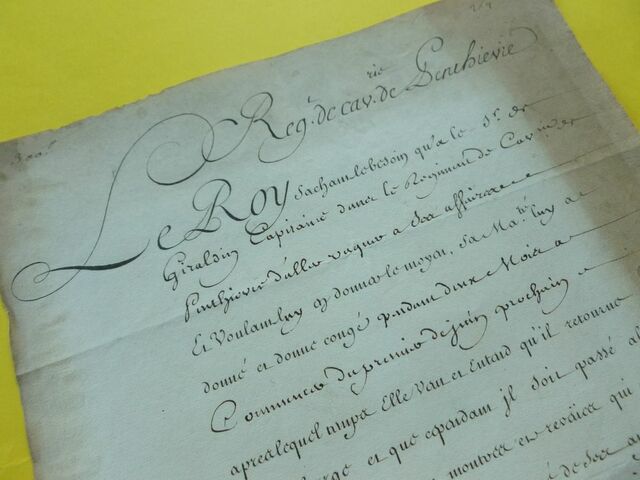 Reg.t de cav.rie de Penthievre
300.#
Le Roy Sachant le besoin qu'a le S.r de
Giraldin Capitaine dans le Regiment de Cav.rie de
Penthievre d'aller vaquer a Ses affaires
Et Voulant luy en donner le moyen, Sa Ma.té luy a
donné et donne congé pendant deux Mois a
Commencer du premier de juin prochain
apres lequel temps Elle Veut et Entend qu'il retourne
charge et que cependant jl Soit passé
montres et reveües qui
de Ses